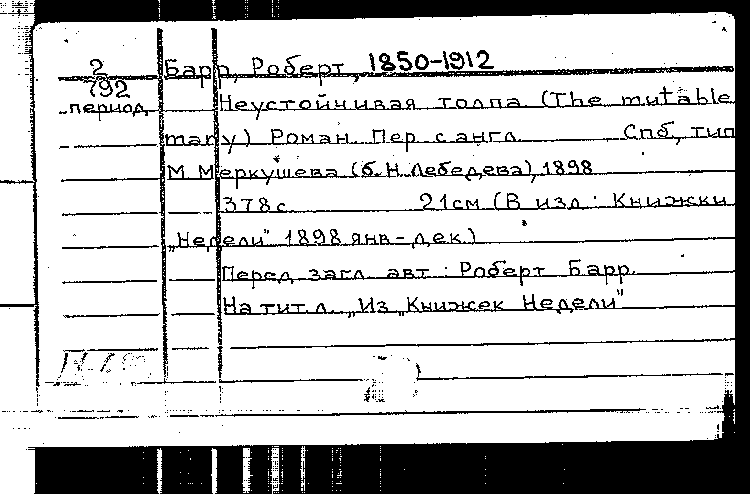 2
792
период
Барр, Роберт, 1850-1912
Неустойчивая толпа (The mutable
many) Роман. Пер. с англ. Спб, тип.
М. Меркушева (б. Н. Лебедева), 1898
378 с. 21 см (В изд.: Книжки
„Недели" 1898 янв.-дек.)
Перед загл. авт.: Роберт Барр.
На тит. л. „Из „Книжек Недели"